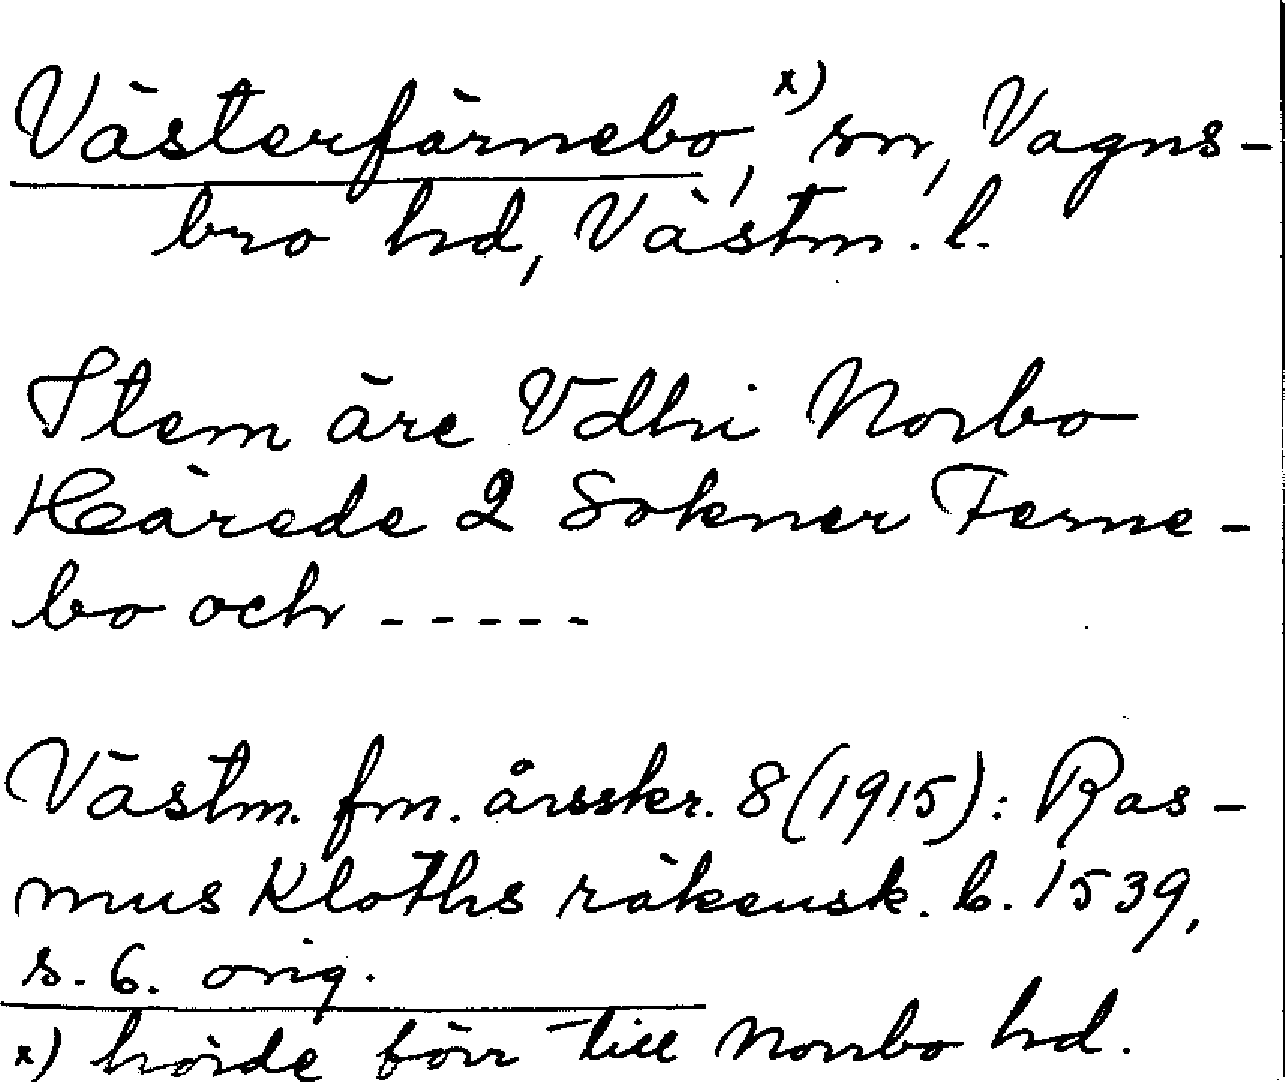 Västerfärnebo, x) sn, Vagns-
bro hd, Västm. l.
Item äre Vdhi Norbo
Heärede 2 Sokner Ferne-
bo och -----
Västm. fm. årsskr. 8 (1915): Ras-
mus Kloths räkensk. b. 1539,
s. 6. orig.
x) hörde förr till Norrbo hd.